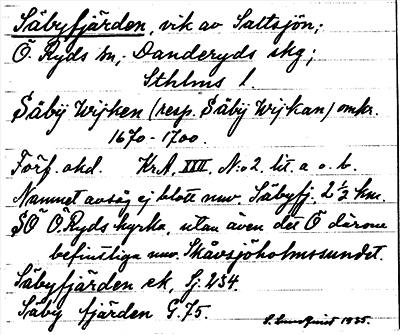 Säbyfjärden, vik av Saltsjön;
Ö. Ryds sn; Danderyds skg;
Sthlms l.
Säbÿ Wijken (resp. Säbÿ Wijkan) omkr.
1670-1700.
Förf. okd. KrA, XXII, N:o 2. lit. a o. b.
Namnet avsåg ej blott nuv. Säbyfj. 2 1/2 km.
SÖ Ö. Ryds kyrka, utan även det Ö därom
befintliga nuv. Skåvsjöholmssundet.
Säbyfjärden ek, Sj. 234.
Säby fjärden G. 75.
S. Lundquist 1935.